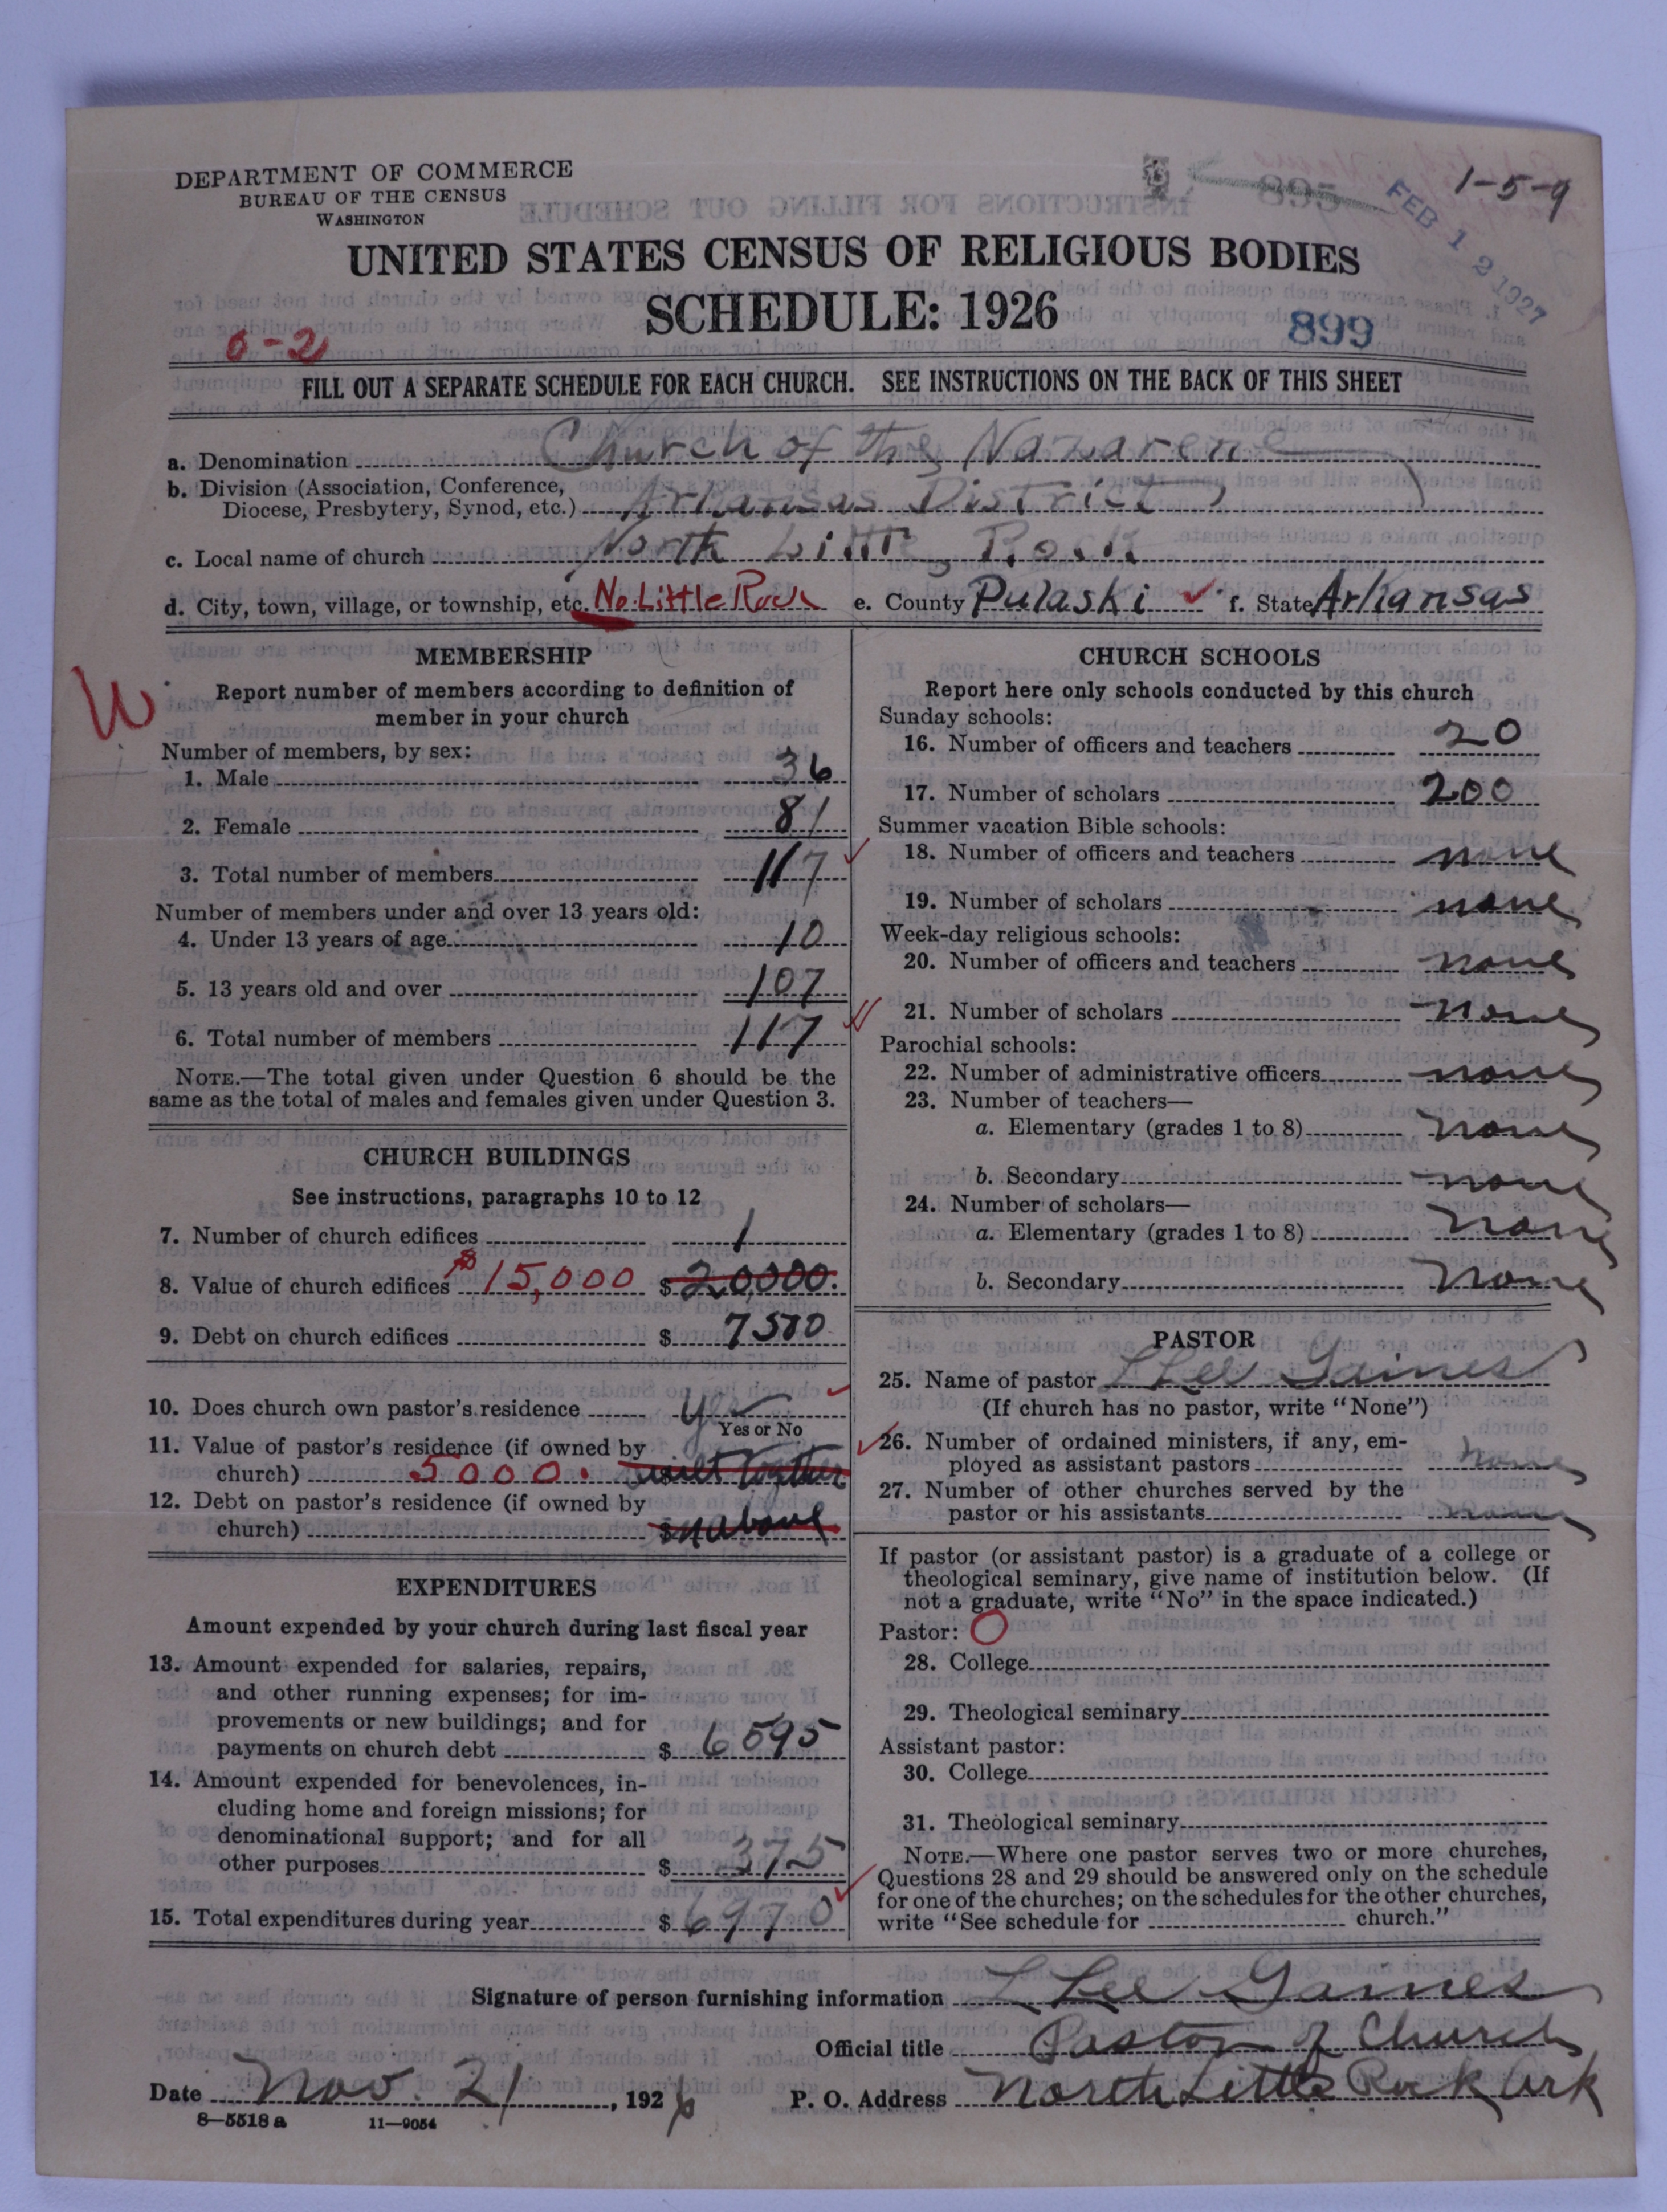 DEPARTMENT OF COMMERCE
BUREAU OF THE CENSUS
WASHINGTON
895
1-5-9
FEB 12 1927
UNITED STATES CENSUS OF RELIGIOUS BODIES
SCHEDULE: 1926
899
0-2
FILL OUT A SEPARATE SCHEDULE FOR EACH CHURCH. SEE INSTRUCTIONS ON THE BACK OF THIS SHEET
a. Denomination Church of the Nazarene
b. Division (Association, Conference,
Diocese, Presbytery, Synod, etc.) Arkansas District
c. Local name of church North Little Rock
d. City, town, village, or township, etc. No. Little Rock e. County Pulaski f. State Arkansas
W
MEMBERSHIP
Report number of members according to definition of
member in your church
Number of members, by sex:
1. Male 36
2. Female 81
3. Total number of members 117
Number of members under and over 13 years old:
4. Under 13 years of age 10
5. 13 years old and over 107
6. Total number of members 117
NOTE.—The total given under Question 6 should be the
same as the total of males and females given under Question 3.
CHURCH BUILDINGS
See instructions, paragraphs 10 to 12
7. Number of church edifices 1
8. Value of church edifices $15,000 $20,000.
9. Debt on church edifices $7500
10. Does church own pastor's residence Yes
Yes or No
11. Value of pastor's residence (if owned by
church) 5000. built together
12. Debt on pastor's residence (if owned by
church) $ in above
EXPENDITURES
Amount expended by your church during last fiscal year
13. Amount expended for salaries, repairs,
and other running expenses; for im-
provements or new buildings; and for
payments on church debt $6595
14. Amount expended for benevolences, in-
cluding home and foreign missions; for
denominational support; and for all
other purposes $375
15. Total expenditures during year $6970
CHURCH SCHOOLS
Report here only schools conducted by this church
Sunday schools:
16. Number of officers and teachers 20
17. Number of scholars 200
Summer vacation Bible schools:
18. Number of officers and teachers none
19. Number of scholars none
Week-day religious schools:
20. Number of officers and teachers none
21. Number of scholars none
Parochial schools:
22. Number of administrative officers none
23. Number of teachers—
a. Elementary (grades 1 to 8) none
b. Secondary none
24. Number of scholars—
a. Elementary (grades 1 to 8) none
b. Secondary none
PASTOR
25. Name of pastor L Lee Gaines
(If church has no pastor, write "None")
26. Number of ordained ministers, if any, em-
ployed as assistant pastors none
27. Number of other churches served by the
pastor or his assistants none
If pastor (or assistant pastor) is a graduate of a college or
theological seminary, give name of institution below. (If
not a graduate, write "No" in the space indicated.)
Pastor: O
28. College
29. Theological seminary
Assistant pastor:
30. College
31. Theological seminary
NOTE.—Where one pastor serves two or more churches,
Questions 28 and 29 should be answered only on the schedule
for one of the churches; on the schedules for the other churches,
write "See schedule for church."
Signature of person furnishing information L Lee Gaines
Official title Pastor of Church
Date Nov. 21, 1926 P. O. Address North Little Rock Ark
8—5518 a 11—9054